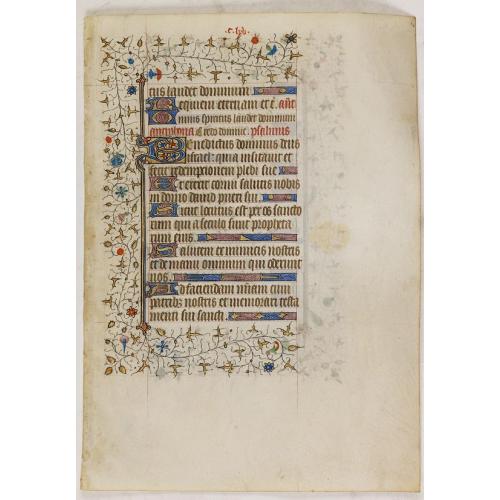 c. lxii.
eius laudet dominum
Requiem eternam et c̄. añt
Omnis spiritus laudet dominum
antiphona. Credo domine. psalmus
Benedictus dominus deus
israel: quia uisitauit et
fecit redempcionem plebi sue
Et erexit cornu salutis nobis
in domo dauid pueri sui.
Sicut locutus est per os sancto
rum qui a seculo sunt propheta
rum eius
Salutem ex inimicis nostris
et de manu omnium qui oderunt
nos.
Ad faciendam m̄iam cum
patribȝ nostris et memorari testa
menti sui sancti.